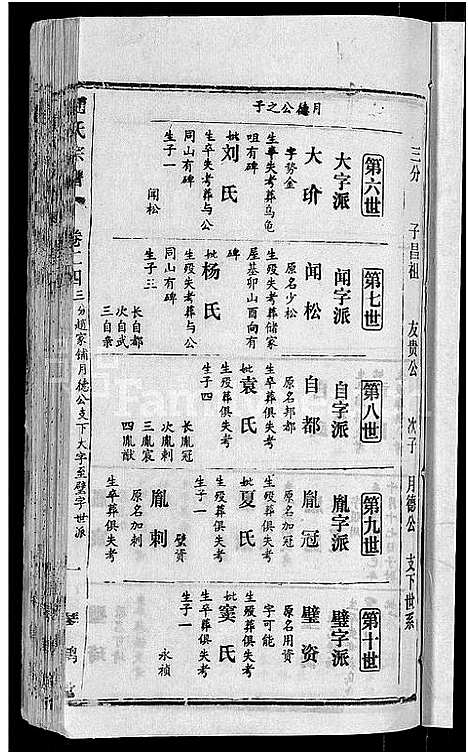 三分 子昌祖 友贵公 次子 月德公 支下世系
第六世
大字派
月德公之子
大玠
字势金
生卒失考葬乌龟
咀有碑
妣刘氏
生卒失考葬与公
同山有碑
生子一
闻松
第七世
闻字派
闻松
原名少松
生殁失考葬储家
屋基卯山酉向有
碑
妣杨氏
生殁失考葬与公
同山有碑
生子三
长自都
次自武
三自亲
第八世
自字派
自都
原名邦都
生卒葬俱失考
妣袁氏
生殁葬俱失考
生子四
长胤冠
次胤刺
三胤宸
四胤猷
第九世
胤字派
胤冠
原名加冠
生殁葬俱失考
妣夏氏
生殁葬俱失考
生子一
璧资
胤刺
原名加刺
生卒葬俱失考
第十世
璧字派
璧资
原名用资
字可能
生殁葬俱失考
妣窦氏
生卒葬俱失考
生子一
永祯
赵氏宗谱 卷二四 三分赵家铺月德公支下大字至璧字世派 一 琴鹤堂